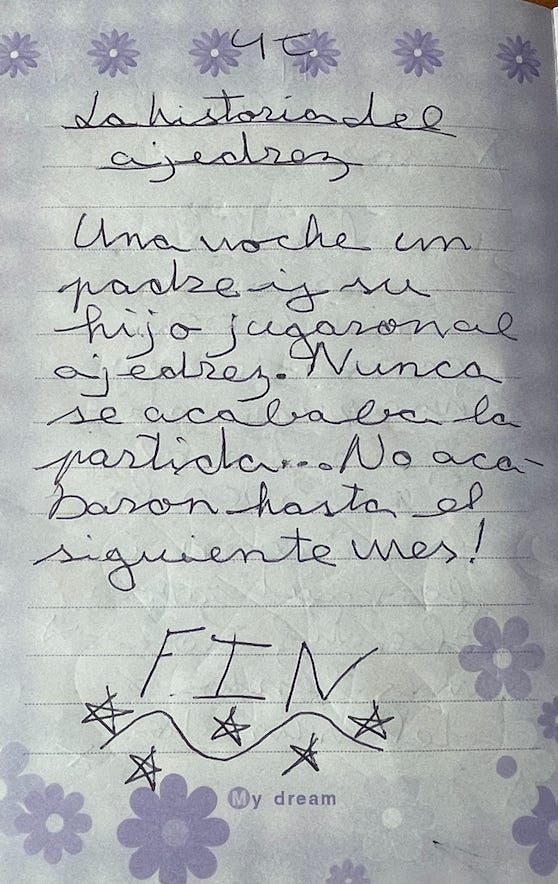 La historia del
ajedrez
Una noche un
padre y su
hijo jugaron al
ajedrez. Nunca
se acababa la
partida... No aca-
baron hasta el
siguiente mes!
FIN
My dream